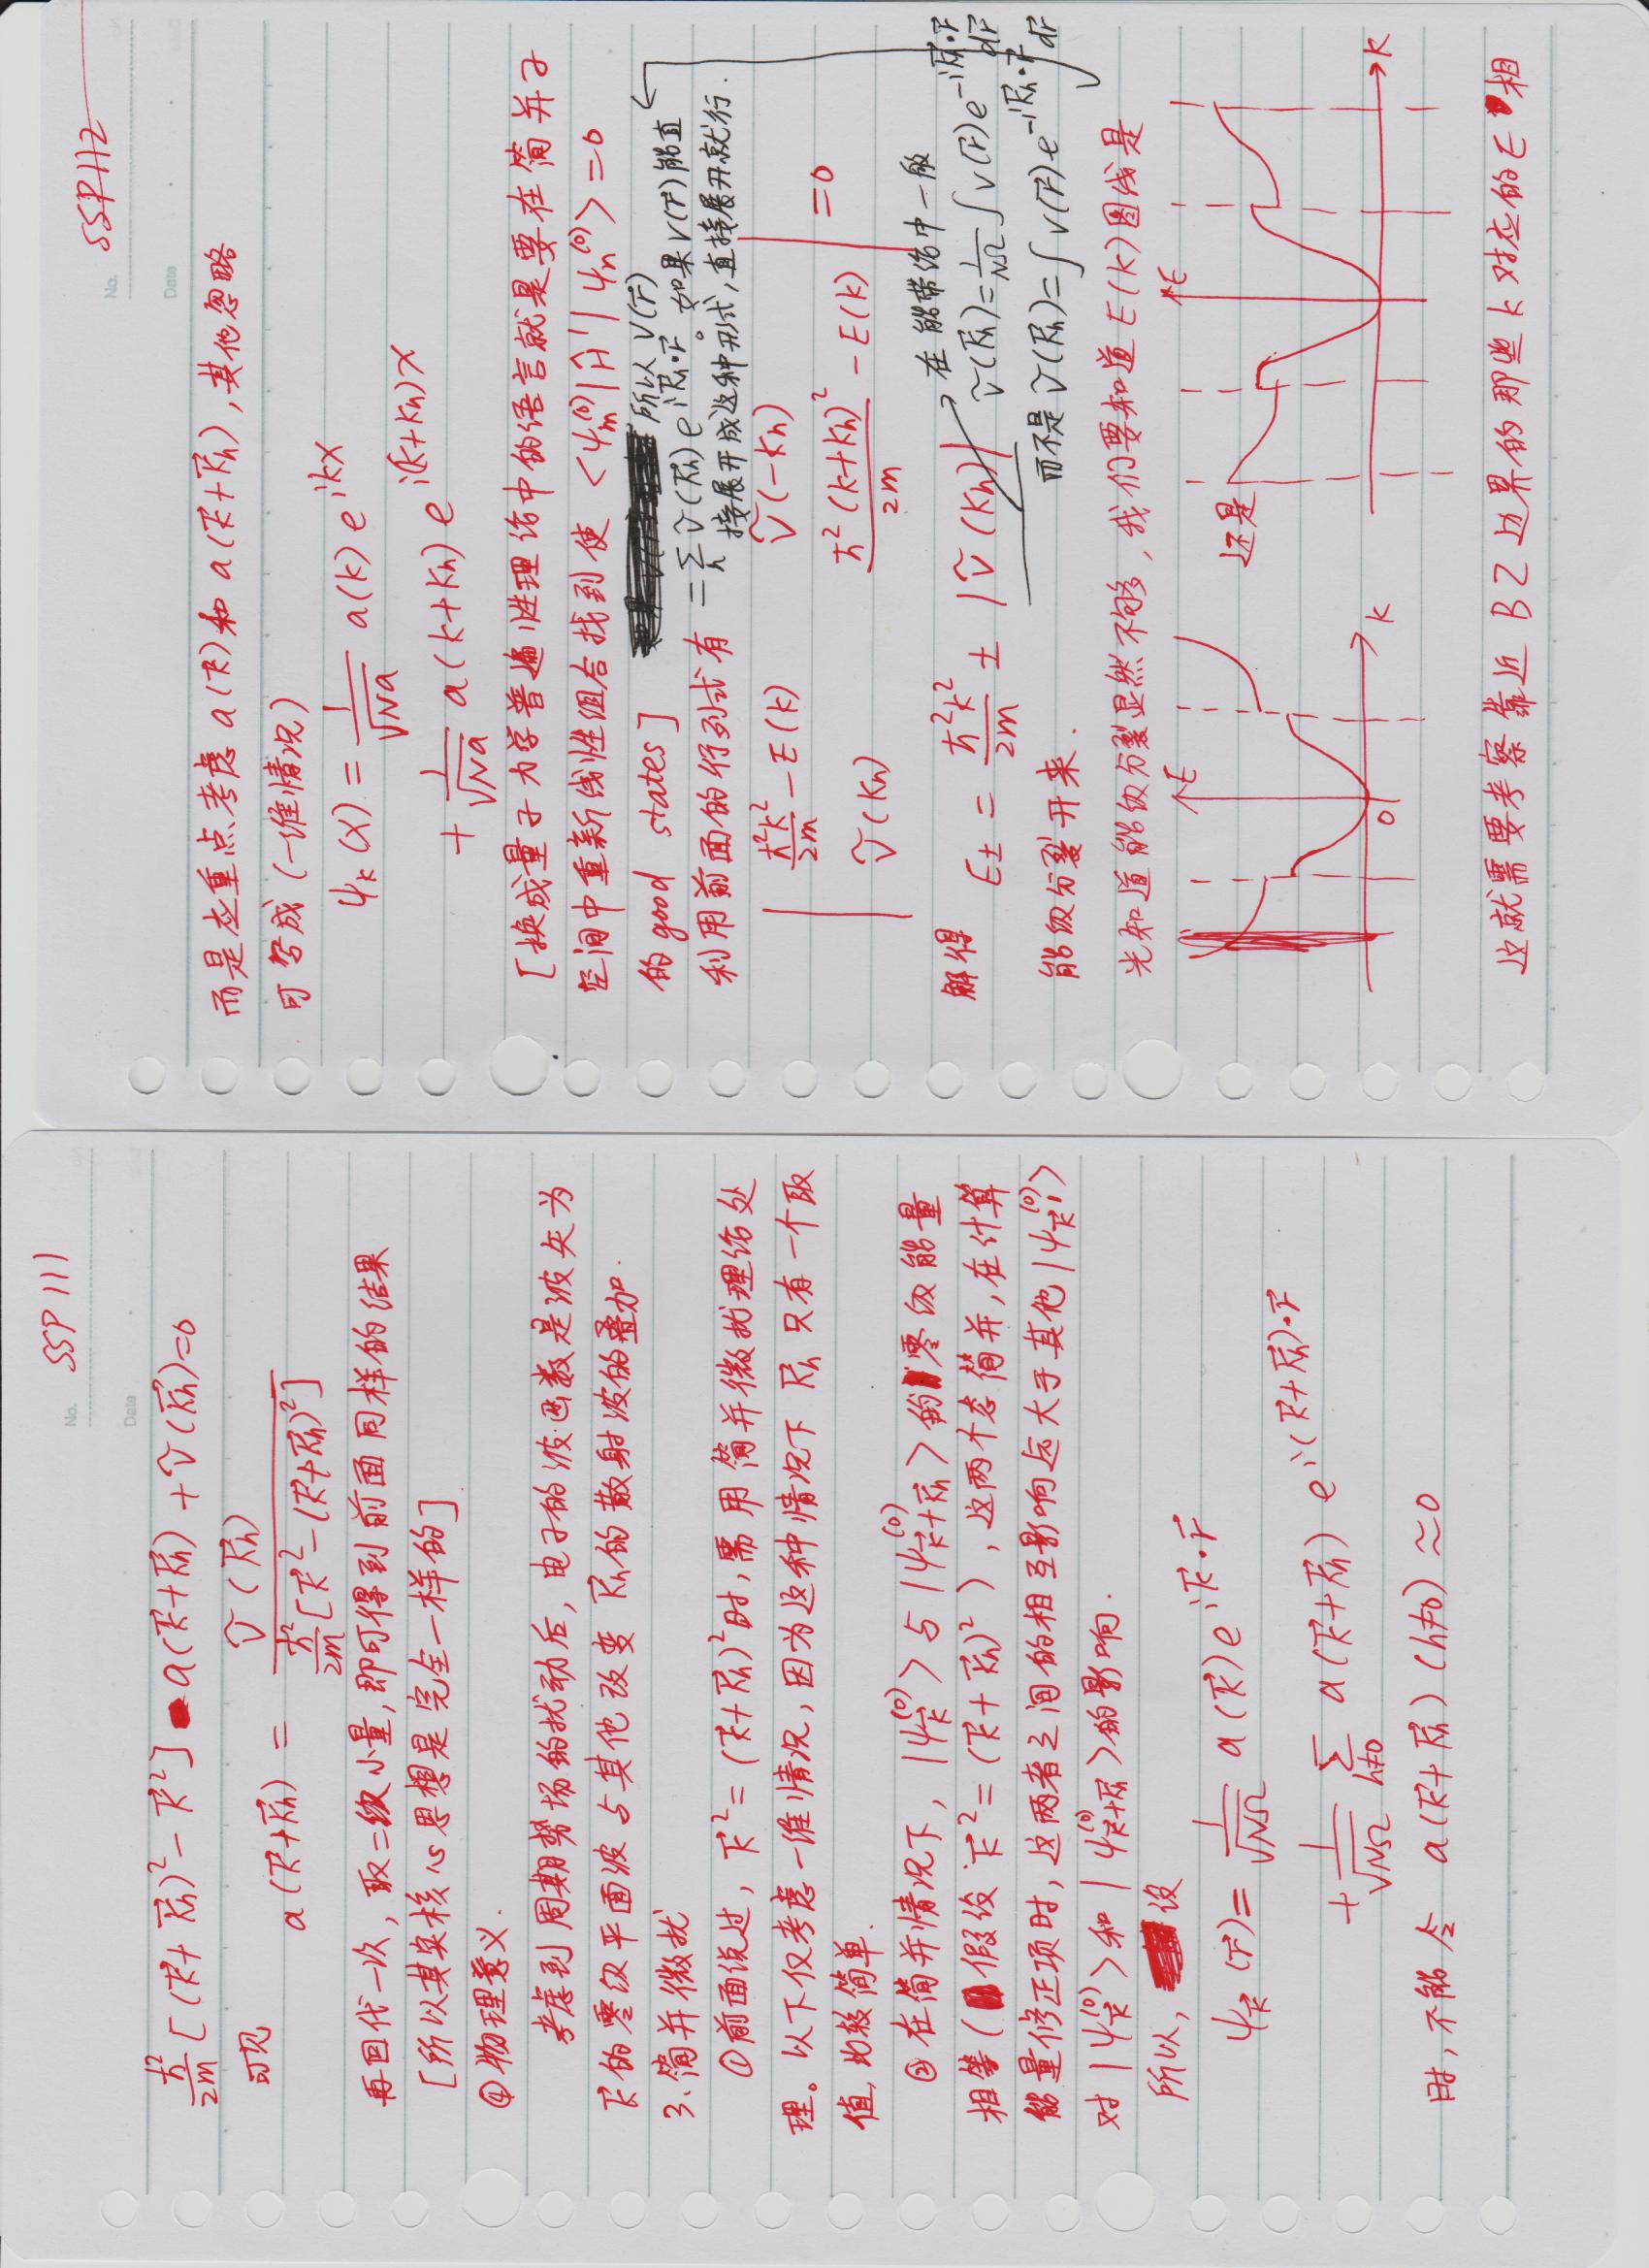 No. SSP 111
Date
ħ²/2m [(k⃗+K⃗h)²−k⃗²] a(k⃗+K⃗h)+Ṽ(K⃗h)=0
可见
a(k⃗+K⃗h) = Ṽ(K⃗h) / ħ²/2m [k⃗²−(k⃗+K⃗h)²]
再回代一次，取二级小量，即可得到前面同样的结果
[所以其实核心思想是完全一样的]
④物理意义.
考虑到周期势场的扰动后，电子的波函数是波矢为
k⃗的零级平面波与其他改变K⃗h的散射波的叠加.
3、简并微扰
①前面说过，k⃗²=(k⃗+K⃗h)²时，需用简并微扰理论处
理。以下仅考虑一维情况，因为这种情况下K⃗h只有一个取
值，比较简单.
②在简并情况下，|ψk⃗⁽⁰⁾>与|ψk⃗+K⃗h⁽⁰⁾>的零级能量
相等(假设k⃗²=(k⃗+K⃗h)²)，这两个态简并，在计算
能量修正项时，这两者之间的相互影响远大于其他|ψk⃗'⁽⁰⁾>
对|ψk⃗⁽⁰⁾>和|ψk⃗+K⃗h⁽⁰⁾>的影响.
所以，设
ψk⃗(r⃗)= 1/√NΩ a(k⃗)e^{ik⃗·r⃗}
+ 1/√NΩ Σ_{h≠0} a(k⃗+K⃗h) e^{i(k⃗+K⃗h)·r⃗}
时，不能令 a(k⃗+K⃗h) (h≠0) ≈0
No. SSP112
Date
而是应重点考虑a(k⃗)和a(k⃗+K⃗h)，其他忽略
可写成(一维情况)
ψk(x) = 1/√Na a(k) e^{ikx}
+ 1/√Na a(k+Kh) e^{i(k+Kh)x}
[换成量子力学普遍性理论中的语言就是要在简并子
空间中重新线性组合找到使 <ψm⁽⁰⁾|Ĥ'|ψn⁽⁰⁾>=0
的good states]
所以V(r⃗)
=Σ_h Ṽ(K⃗h)e^{iK⃗h·r⃗}。如果V(r⃗)能直
接展开成这种形式，直接展开就行.
利用前面的行列式有
| ħ²k²/2m −E(k) Ṽ(−Kh) |
| Ṽ(Kh) ħ²(k+Kh)²/2m −E(k) | =0
解得 E± = ħ²k²/2m ± |Ṽ(Kh)|
在能带论中一般
Ṽ(K⃗h)=1/NΩ ∫V(r⃗)e^{−iK⃗h·r⃗}dr⃗
而不是Ṽ(K⃗h)=∫V(r⃗)e^{−iK⃗h·r⃗}dr⃗
能级分裂开来.
光知道能级分裂显然不够，我们要知道E(k)图线是
E
0
k
还是
E
k
这就需要考察靠近BZ边界的那些k对应的E相